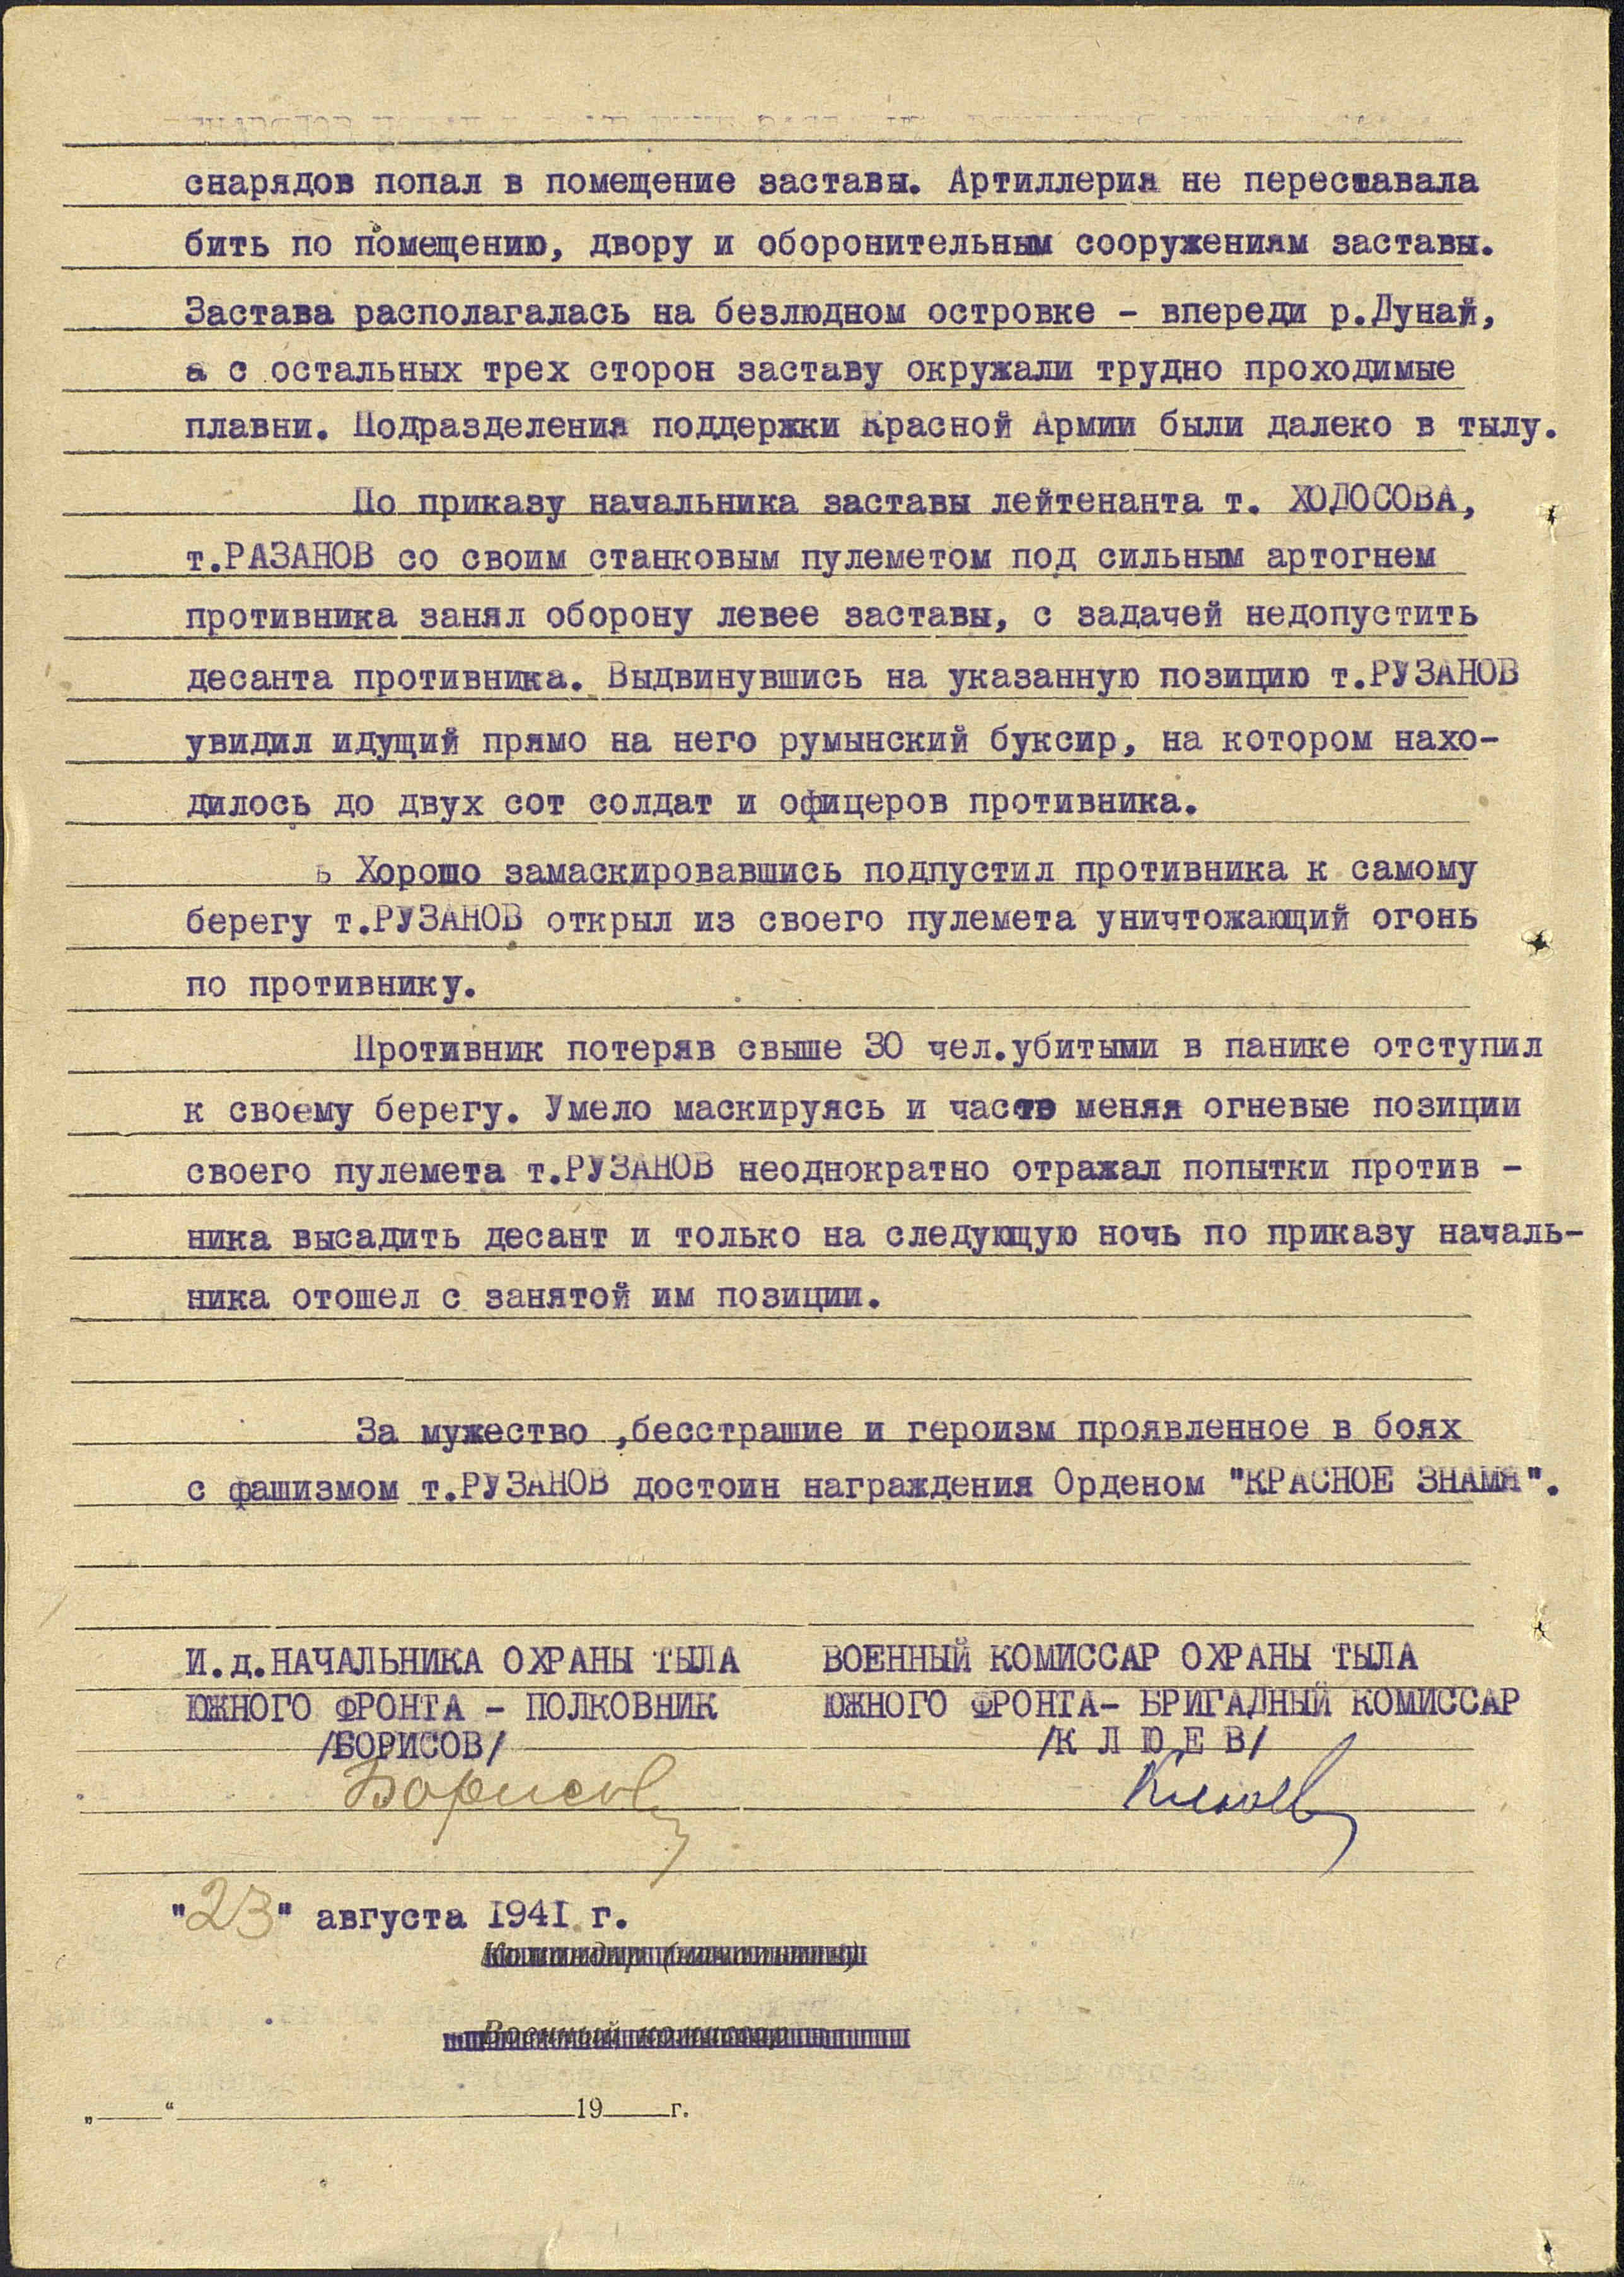 снарядов попал в помещение заставы. Артиллерия не переставала
бить по помещению, двору и оборонительным сооружениям заставы.
Застава располагалась на безлюдном островке - впереди р.Дунай,
а с остальных трех сторон заставу окружали трудно проходимые
плавни. Подразделения поддержки Красной Армии были далеко в тылу.
По приказу начальника заставы лейтенанта т. ХОДОСОВА,
т.РАЗАНОВ со своим станковым пулеметом под сильным артогнем
противника занял оборону левее заставы, с задачей недопустить
десанта противника. Выдвинувшись на указанную позицию т.РУЗАНОВ
увидил идущий прямо на него румынский буксир, на котором нахо-
дилось до двух сот солдат и офицеров противника.
ь Хорошо замаскировавшись подпустил противника к самому
берегу т.РУЗАНОВ открыл из своего пулемета уничтожающий огонь
по противнику.
Противник потеряв свыше 30 чел.убитыми в панике отступил
к своему берегу. Умело маскируясь и часто меняя огневые позиции
своего пулемета т.РУЗАНОВ неоднократно отражал попытки против -
ника высадить десант и только на следующую ночь по приказу началь-
ника отошел с занятой им позиции.
За мужество ,бесстрашие и героизм проявленное в боях
с фашизмом т.РУЗАНОВ достоин награждения Орденом "КРАСНОЕ ЗНАМЯ".
И.д.НАЧАЛЬНИКА ОХРАНЫ ТЫЛА ВОЕННЫЙ КОМИССАР ОХРАНЫ ТЫЛА
ЮЖНОГО ФРОНТА - ПОЛКОВНИК ЮЖНОГО ФРОНТА- БРИГАДНЫЙ КОМИССАР
/БОРИСОВ/ /К Л Ю Е В/
Борисов Клюев
"23" августа 1941 г.
Командир (начальник)
Военный комиссар
„ “ 19 г.